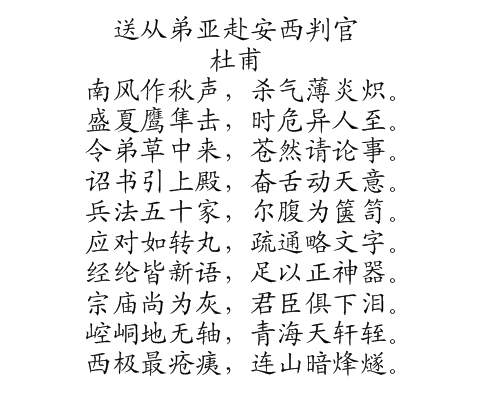 送从弟亚赴安西判官
杜甫
南风作秋声，杀气薄炎炽。
盛夏鹰隼击，时危异人至。
令弟草中来，苍然请论事。
诏书引上殿，奋舌动天意。
兵法五十家，尔腹为箧笥。
应对如转丸，疏通略文字。
经纶皆新语，足以正神器。
宗庙尚为灰，君臣俱下泪。
崆峒地无轴，青海天轩轾。
西极最疮痍，连山暗烽燧。